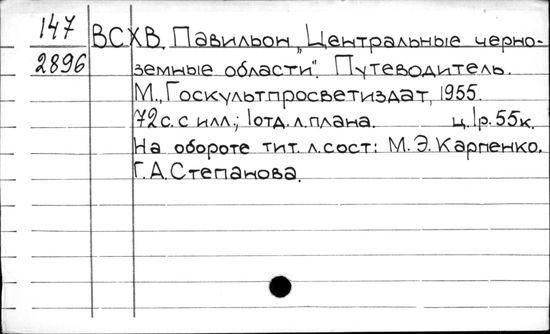 147
2896
ВСХВ. Павильон „Центральные черно-
земные области". Путеводитель.
М., Госкультпросветиздат, 1955.
72 с. с илл.; 1 отд. л. плана. ц. 1р. 55к.
На обороте тит. л. сост: М. Э. Карпенко,
Г. А. Степанова.